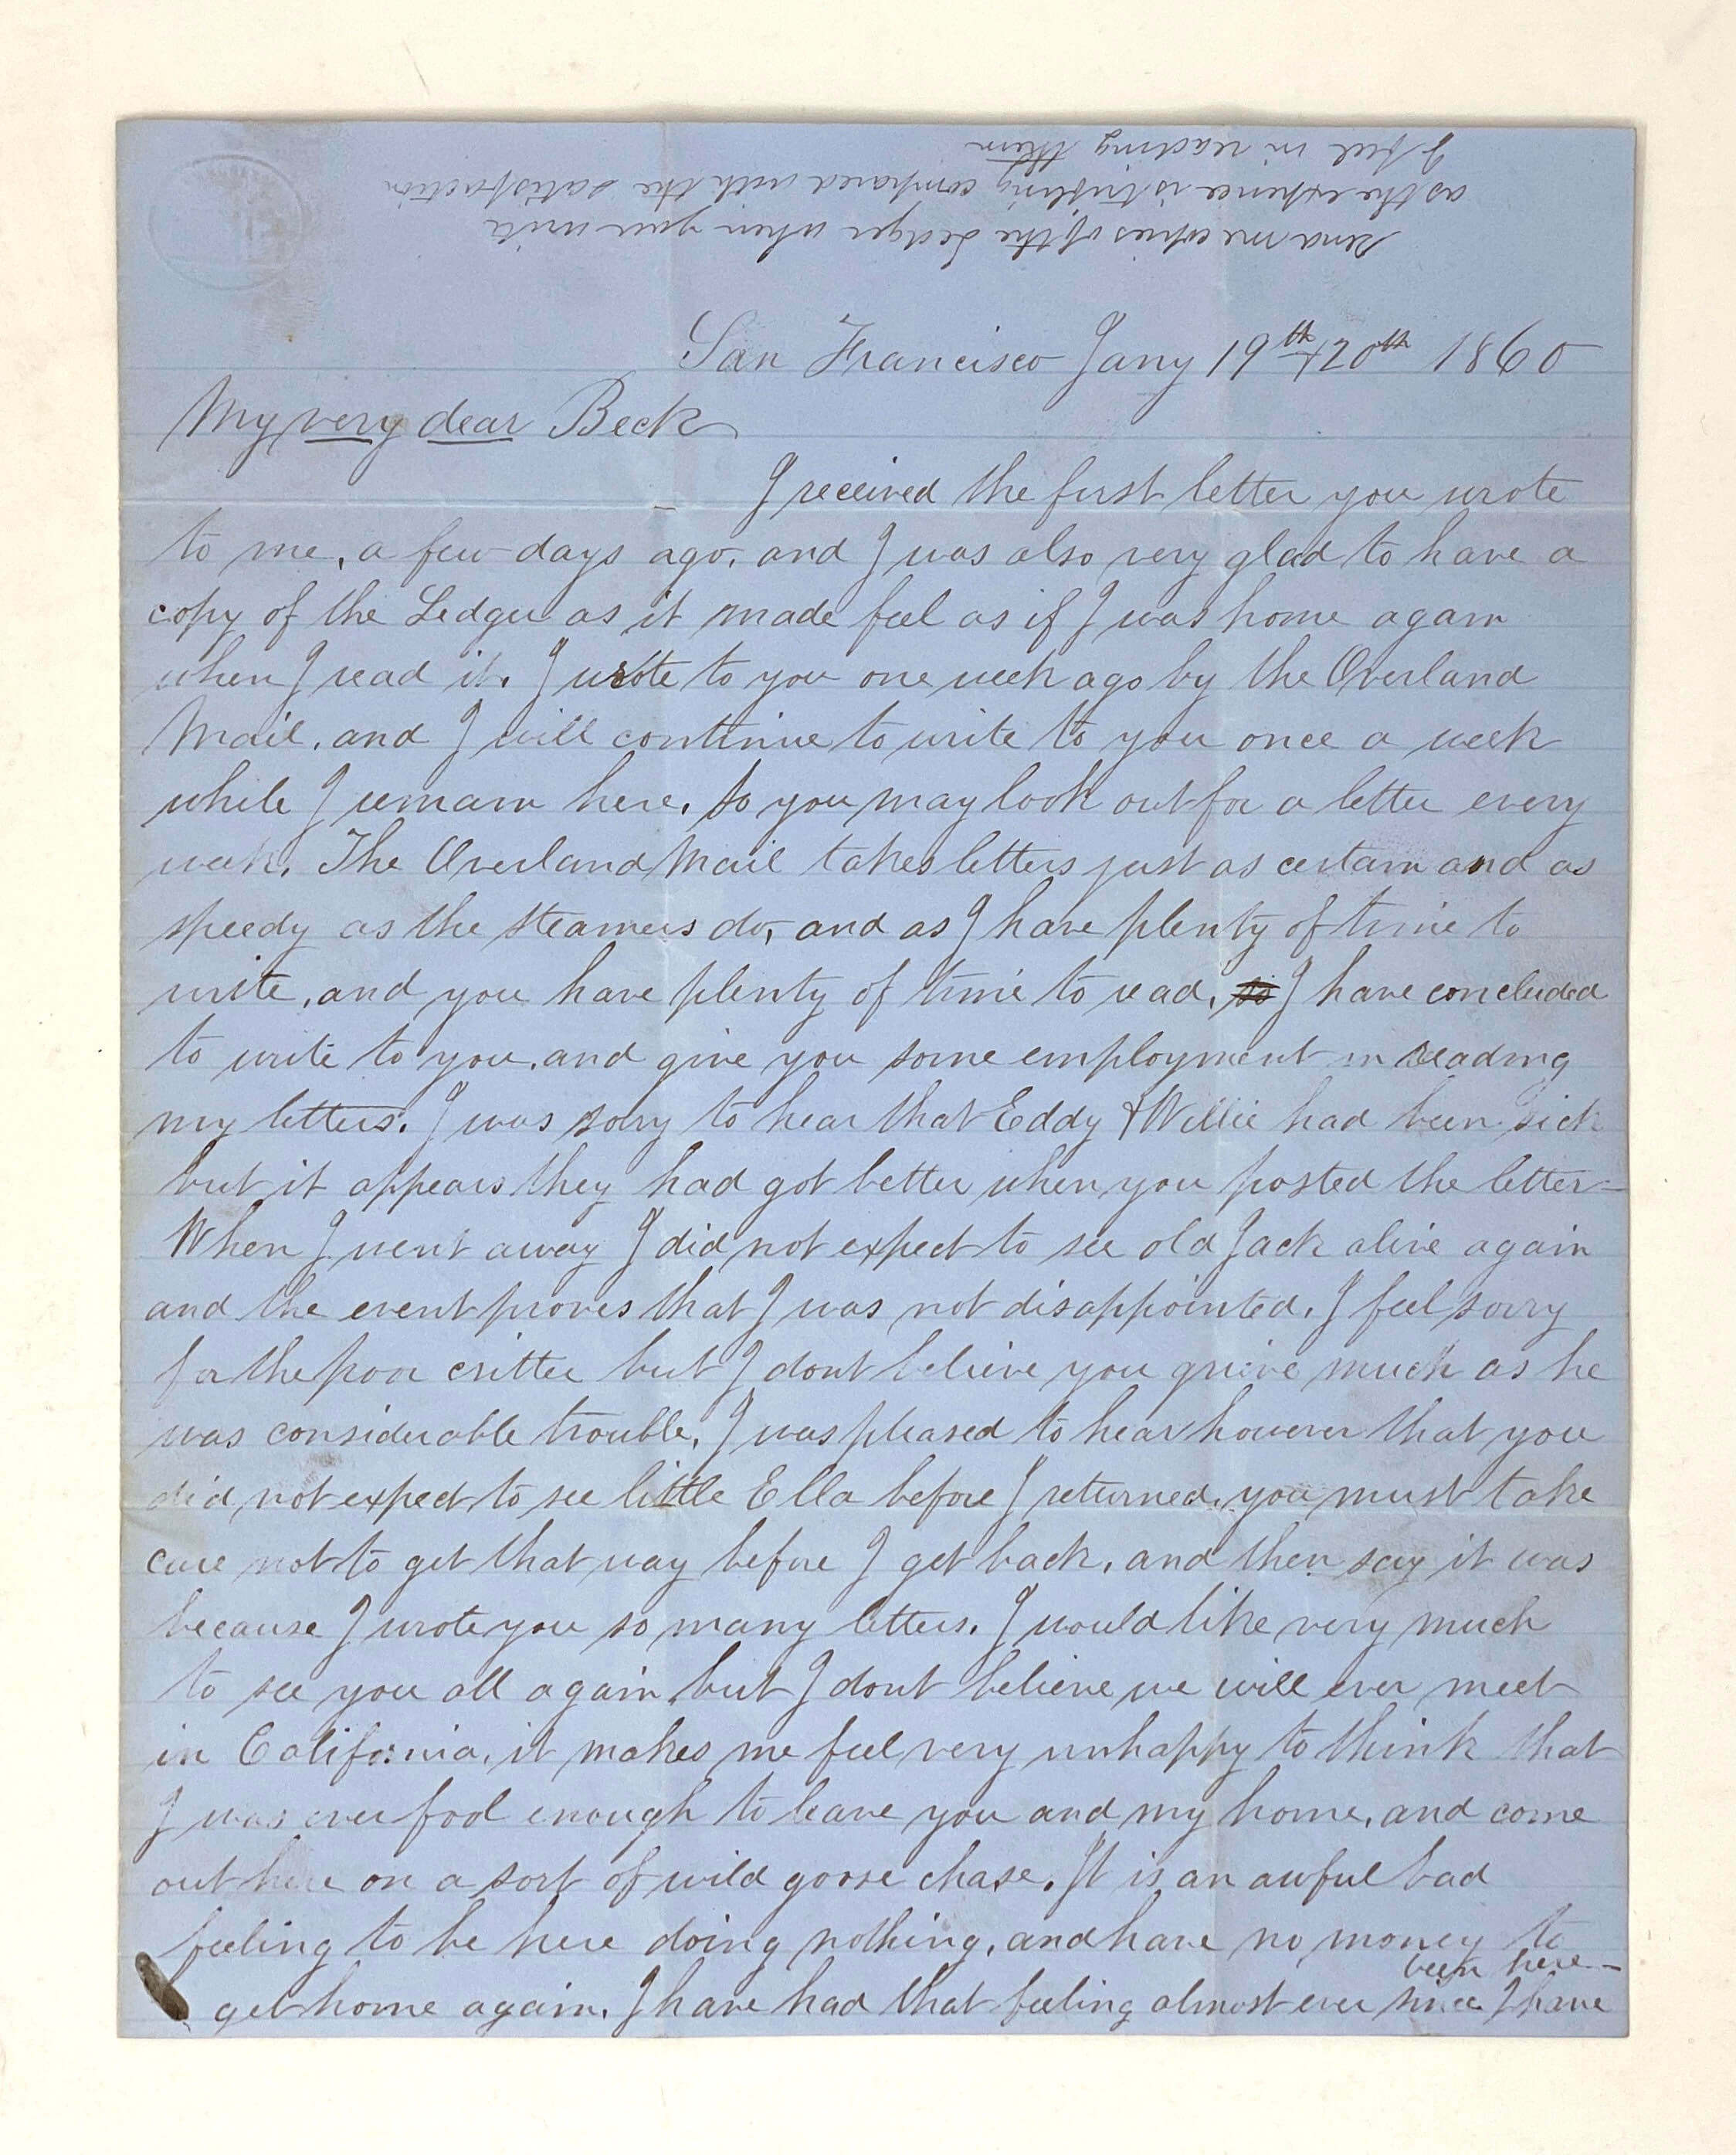 send me copies of the Ledger when you write
as the expence is trifling compared with the satisfaction
I feel in reading them
San Francisco Jany 19th & 20th 1860
My very dear Beck
I received the first letter you wrote
to me, a few days ago, and I was also very glad to have a
copy of the Ledger as it made feel as if I was home again
when I read it. I wrote to you one week ago by the Overland
Mail, and I will continue to write to you once a week
while I remain here. so you may look out for a letter every
week. The Overland Mail takes letters just as certain and as
speedy as the steamers do, and as I have plenty of time to
write, and you have plenty of time to read, so I have concluded
to write to you, and give you some employment in reading
my letters. I was sory to hear that Eddy & Willie had been sick
but it appears they had got better when you posted the letter –
When I went away I did not expect to see old Jack alive again
and the event proves that I was not disappointed. I feel sorry
for the poor critter but I dont believe you grieve much as he
was considerable trouble. I was pleased to hear however that you
did not expect to see little Ella before I returned. you must take
care not to get that way before I get back, and then say it was
because I wrote you so many letters. I would like very much
to see you all again but I dont believe we will ever meet
in California, it makes me feel very unhappy to think that
I was ever fool enough to leave you and my home, and come
out here on a sort of wild goose chase. It is an awful bad
feeling to be here doing nothing, and have no money to
get home again. I have had that feeling almost ever since I have
been here –